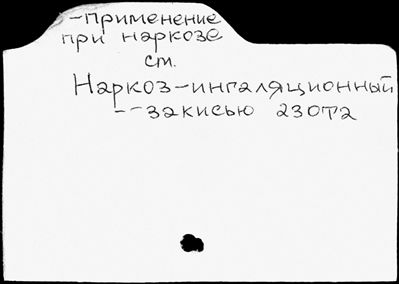 -применение
при наркозе
см.
Наркоз-ингаляционный
-- закисью азота